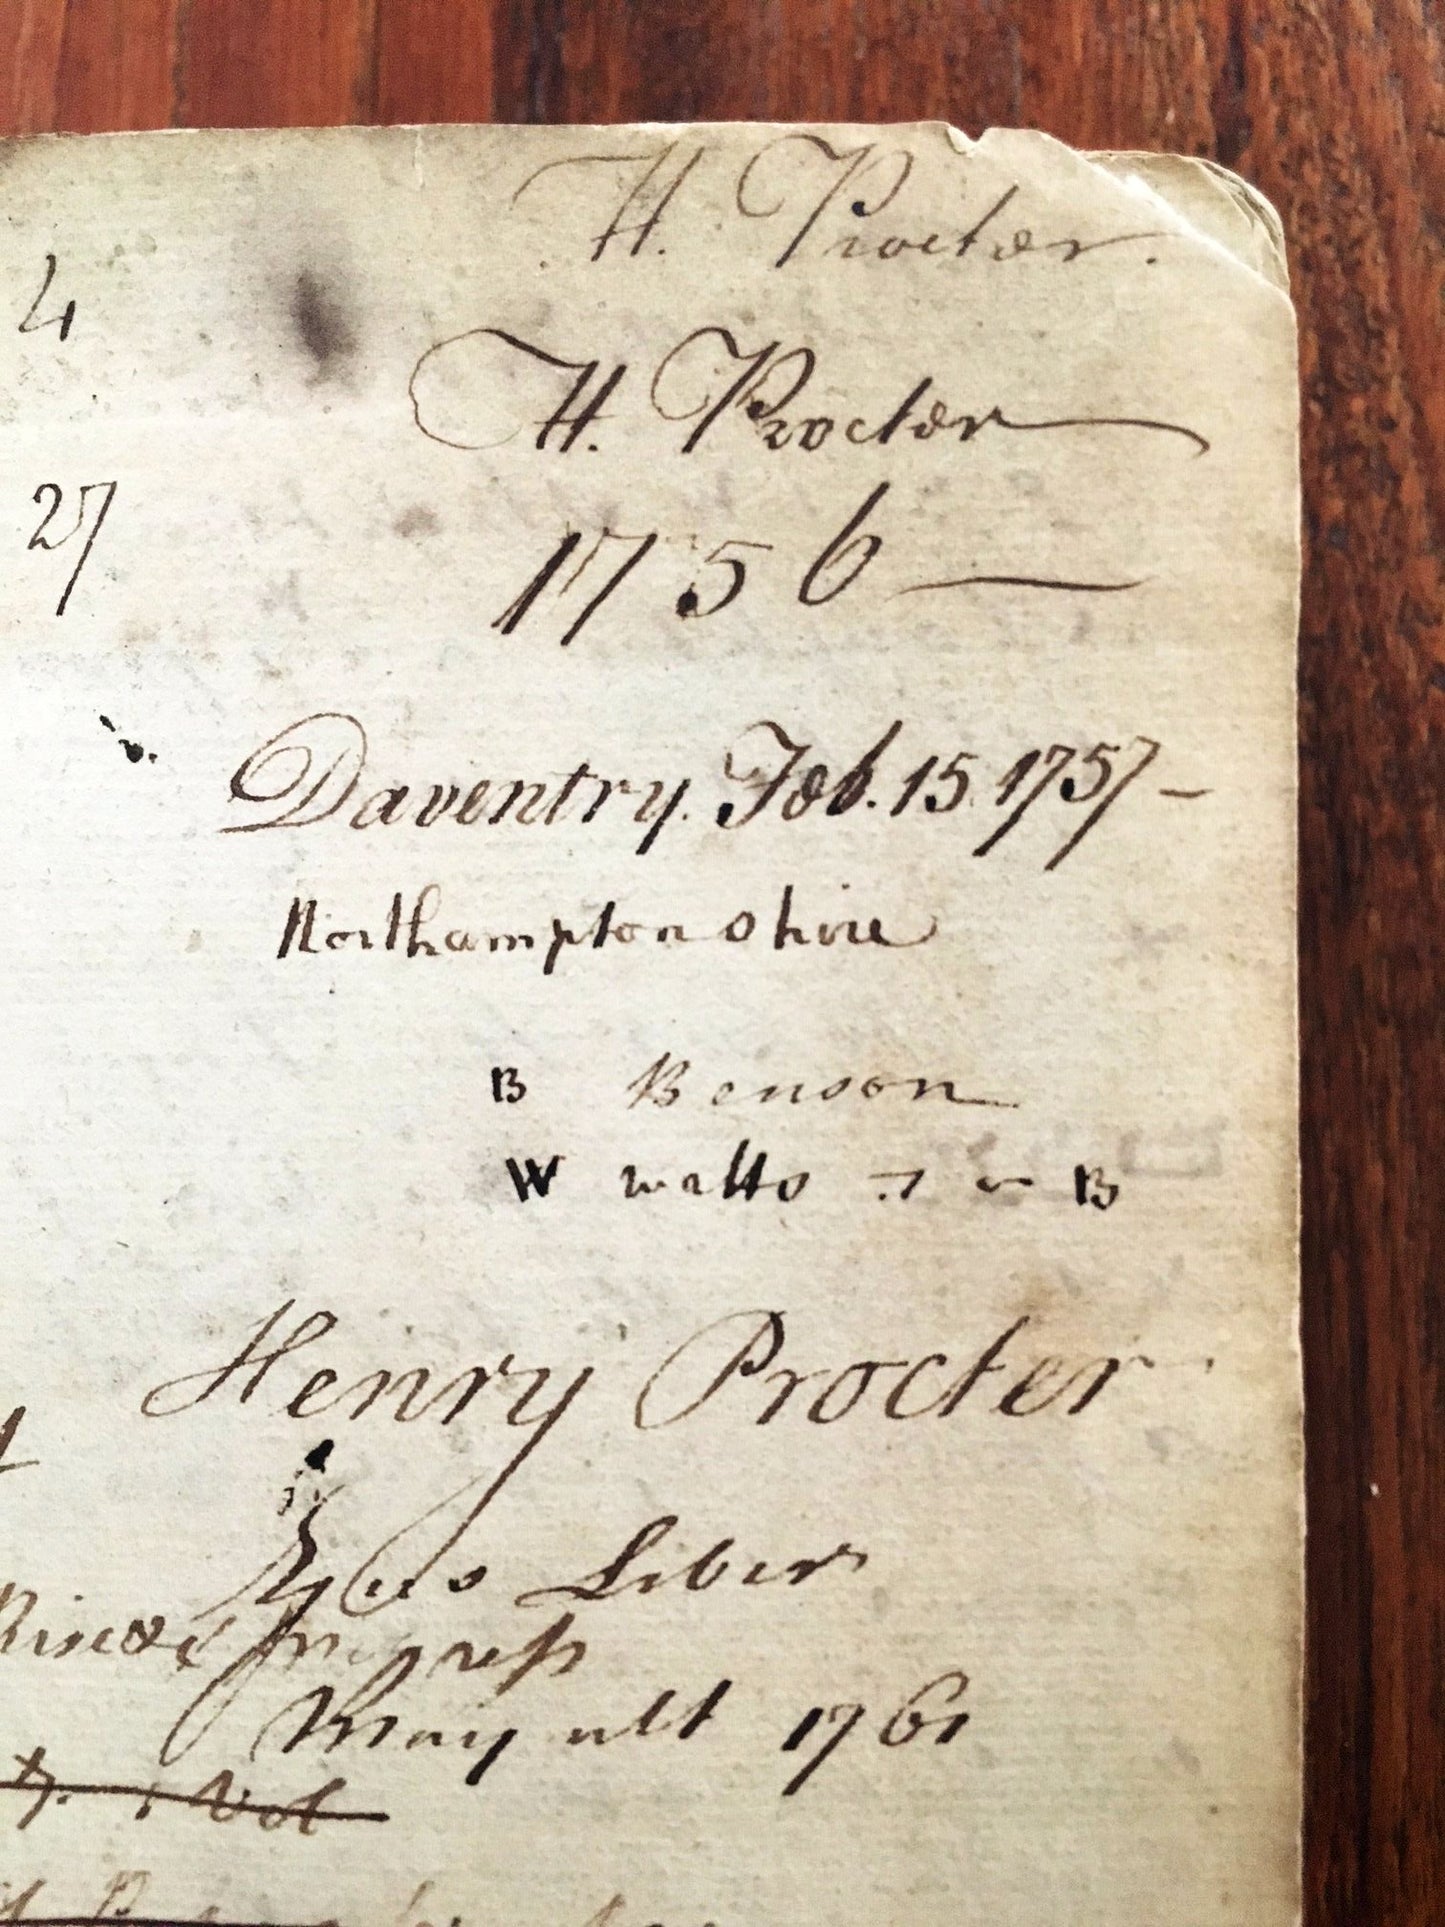 H. Procter.
4
H. Procter
27
1756 —
Daventry. Feb. 15. 1757 —
Northamptonshire
B Benson
W watts B
Henry Procter
ejus Liber
May ult 1761
1 Vol